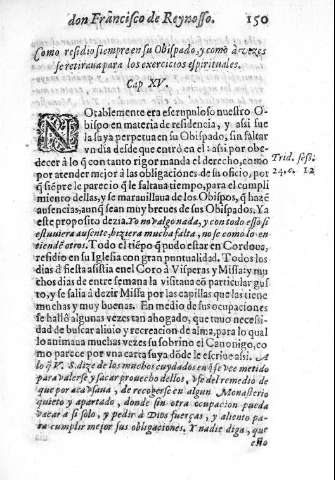 don Francisco de Reynosso. 150
Como residio siempre en su Obispado, y como à vezes
se retiraua para los exercicios espirituales.
Cap XV.
NOtablemente era escrupuloso nuestro O-
bispo en materia de residencia, y assi fue
la suya perpetua en su Obispado, sin faltar
vn dia desde que entrò en el: assi por obe-
decer à lo q̃ con tanto rigor manda el derecho, como
por atender mejor à las obligaciones de su oficio, por
q̃ siẽpre le parecio q̃ le faltaua tiempo, para el cumpli
miento dellas, y se marauillaua de los Obispos, q̃ hazẽ
ausencias, aunq̃ sean muy breues de sus Obispados. Ya
este proposito dezia. Yo no valgo nada, y con todo esso si
estuuiera ausente, hiziera mucha falta, no se como lo en
tiendẽ otros. Todo el tiẽpo q̃ pudo estar en Cordoua,
residio en su Iglesia con gran puntualidad. Todos los
dias d̃ fiesta assistia en el Coro à Visperas y Missa: y mu
chos dias de entre semana la visitaua cõ particular gus
to, y se salia à dezir Missa por las capillas que las tiene
muchas y muy buenas. En medio de sus ocupaciones
se hallò algunas vezes tan ahogado, que tuuo necessi-
dad de buscar aliuio y recreacion de alma, para lo qual
lo animaua muchas vezes su sobrino el Canonigo, co
mo parece por vna carta suya dõde le escriue assi. A
lo q̃ V. S. dize de los muchos cuydados en q̃ se vee metido
para valerse y sacar prouecho dellos, vse del remedio de
que por acà vsaua, de recogerse en algun Monasterio
quieto y apartado, donde sin otra ocupacion pueda
vacar à si solo, y pedir à Dios fuerças, y aliento pa-
ra cumplir mejor sus obligaciones. Y nadie diga, que
esso
Trid. sess.
24. c. 12